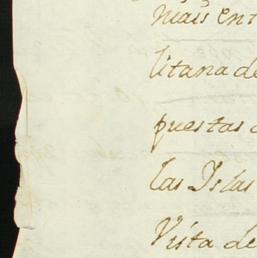 mais ent
litana de
puestas
las Yslas
Vista de